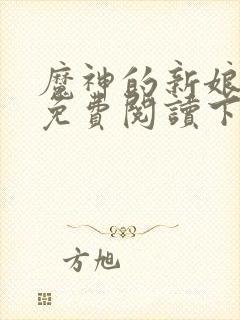 魔神的新娘
免費閱讀下
方旭